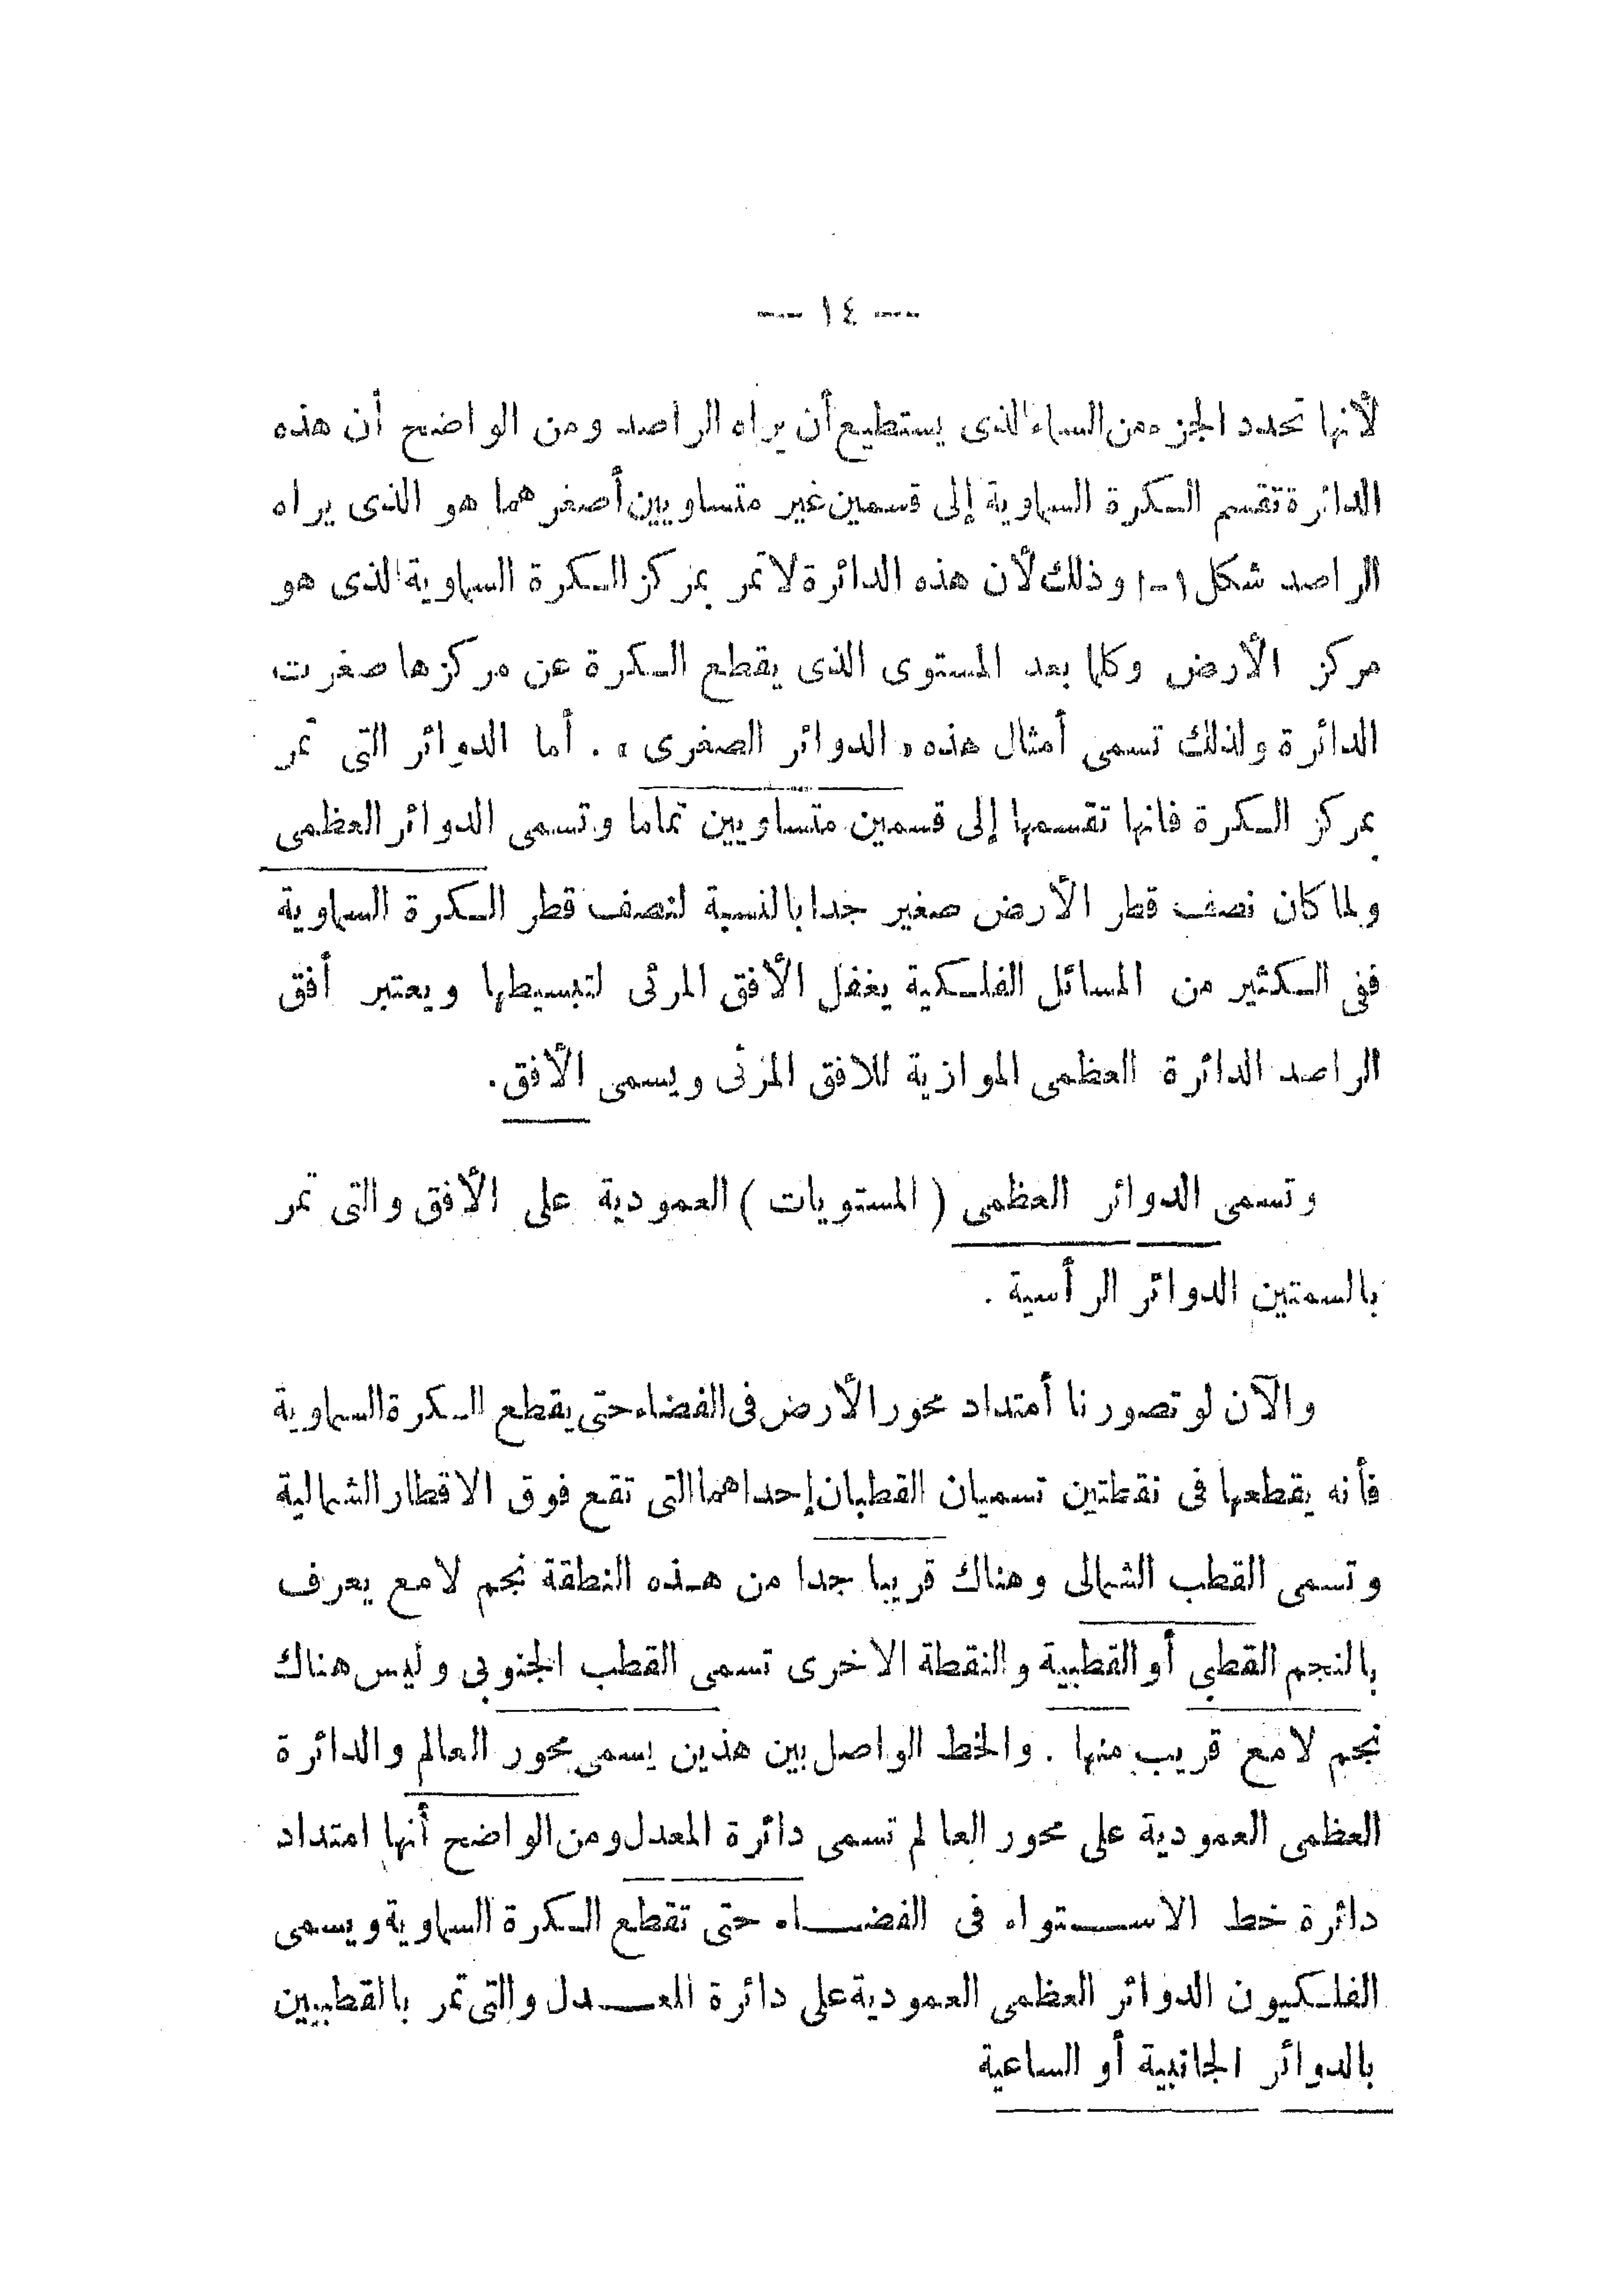 -- ١٤ --
لأنها تحدد الجزء من السماء الذى يستطيع أن يراه الراصد ومن الواضح أن هذه
الدائرة تقسم الكرة السماوية إلى قسمين غير متساويين أصغرهما هو الذى يراه
الراصد شكل ١-١ وذلك لأن هذه الدائرة لا تمر بمركز الكرة السماوية الذى هو
مركز الأرض وكلما بعد المستوى الذى يقطع الكرة عن مركزها صغرت
الدائرة ولذلك تسمى أمثال هذه « الدوائر الصغرى » . أما الدوائر التى تمر
بمركز الكرة فانها تقسمها إلى قسمين متساويين تماما وتسمى الدوائر العظمى
ولما كان نصف قطر الأرض صغير جدا بالنسبة لنصف قطر الكرة السماوية
ففى الكثير من المسائل الفلكية يغفل الأفق المرئى لتبسيطها ويعتبر أفق
الراصد الدائرة العظمى الموازية للافق المرئى ويسمى الأفق.
وتسمى الدوائر العظمى ( المستويات ) العمودية على الأفق والتى تمر
بالسمتين الدوائر الرأسية .
والآن لو تصورنا أمتداد محور الأرض فى الفضاء حتى يقطع الكرة السماوية
فأنه يقطعها فى نقطتين تسميان القطبان إحداهما التى تقع فوق الاقطار الشمالية
وتسمى القطب الشمالى وهناك قريبا جدا من هذه النطقة نجم لامع يعرف
بالنجم القطبي أو القطبية والنقطة الاخرى تسمى القطب الجنوبى وليس هناك
نجم لامع قريب منها . والخط الواصل بين هذين يسمى محور العالم والدائرة
العظمى العمودية على محور العالم تسمى دائرة المعدل ومن الواضح أنها امتداد
دائرة خط الاستواء فى الفضاء حتى تقطع الكرة السماوية ويسمى
الفلكيون الدوائر العظمى العمودية على دائرة المعدل والتى تمر بالقطبيين
بالدوائر الجانبية أو الساعية